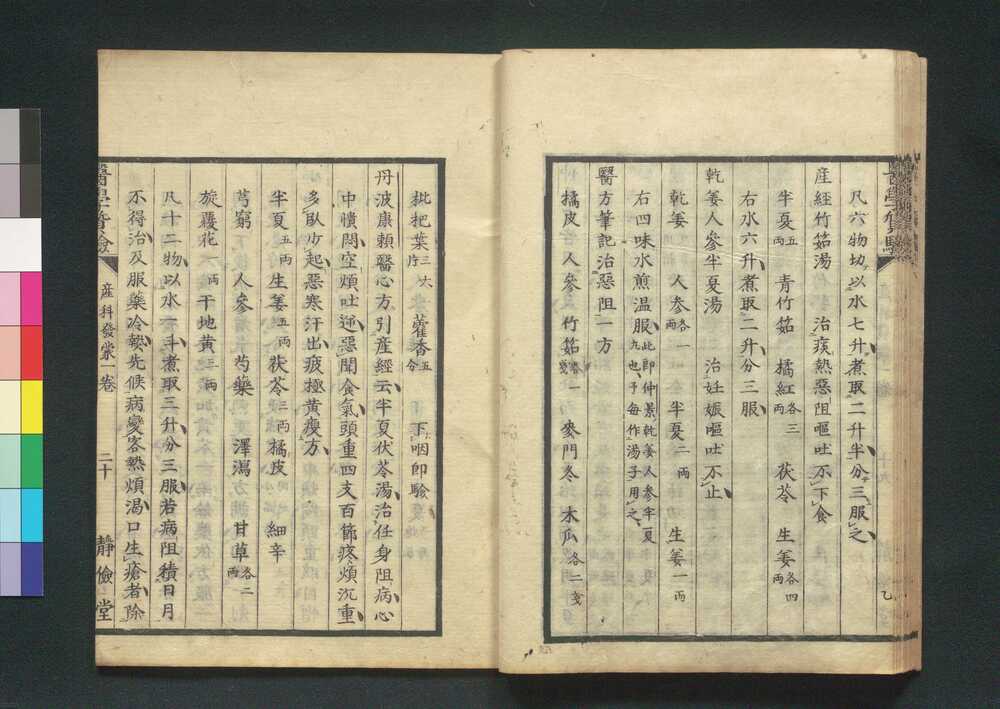 凡六物切以水七升煮取二升半分三服之
産経竹筎湯　治痰熱惡阻嘔吐不下食
半夏五両　青竹筎　橘紅各三両　茯苓　生姜各四両
右水六升煮取二升分三服
乾姜人參半夏湯　治妊娠嘔吐不止
乾姜　人参各一両　半夏二両　生姜一両
右四味水煎温服此即仲景乾姜人参半夏丸也予毎作湯子用之
醫方筆記治惡阻一方
橘皮　人參　竹筎各一戔　麥門冬　木瓜各二戔
枇杷葉三大片　藿香五分　下咽即驗
丹波康頼醫心方引産經云半夏茯苓湯治任身阻病心
中憒悶空煩吐逆惡聞食氣頭重四支百節疼煩沉重
多臥少起惡寒汗出疲極黄瘦方
半夏五両　生姜五両　茯苓三両　橘皮　細辛
芎藭　人參　芍藥　澤瀉　甘草各二両
旋覆花一両　干地黄三両
凡十二物以水一斗煮取三升分三服若病阻積日月
不得治及服藥冷熱先候病變客熱煩渇口生瘡者除
産科發蒙一卷
二十
靜儉堂